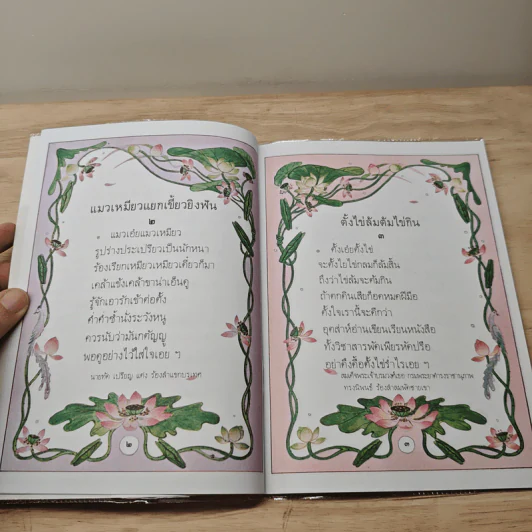 แมวเหมียวแยกเขี้ยวยิงฟัน
๒
แมวเอ๋ยแมวเหมียว
รูปร่างประเปรียวเป็นนักหนา
ร้องเรียกเหมียวเหมียวเดี๋ยวก็มา
เคล้าแข้งเคล้าขาน่าเอ็นดู
รู้จักเอารักเข้าต่อตั้ง
ค่ำค่ำซ้ำนั่งระวังหนู
ควรนับว่ามันกตัญญู
พอดูอย่างไว้ใส่ใจเอย ฯ
นายทัด เปรียญ แต่ง ร้องลำแขกบรเทศ
๒
ตั้งไข่ล้มต้มไข่กิน
๓
ตั้งเอ๋ยตั้งไข่
จะตั้งไยไข่กลมก็ล้มสิ้น
ถึงว่าไข่ล้มจะต้มกิน
ถ้าตกดินเสียก็อดหมดฝีมือ
ตั้งใจเรานี้จะดีกว่า
อุตส่าห์อ่านเขียนเรียนหนังสือ
ทั้งวิชาสารพัดเพียรหัดปรือ
อย่าดึงดื้อตั้งไข่ร่ำไรเอย ฯ
สมเด็จพระเจ้าบรมวงศ์เธอ กรมพระยาดำรงราชานุภาพ
ทรงนิพนธ์ ร้องลำสมพักชายเขา
๓